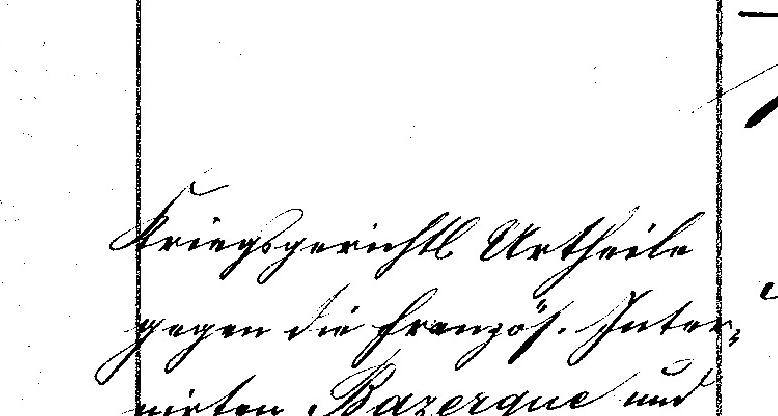 Kriegsgerichtl Urtheile
gegen die französ. Inter-
nirten Bazerque und